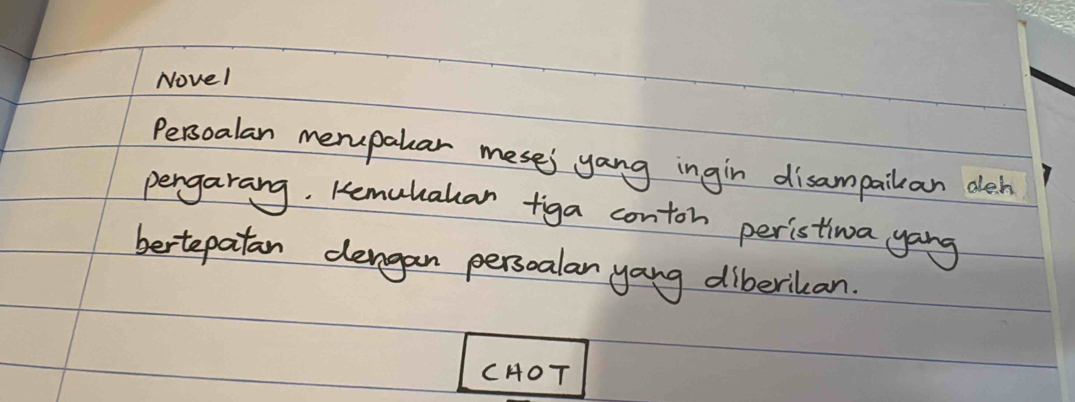 Novel
Persoalan merupakan mesej yang ingin disampaikan oleh
pengarang. Kemukakan tiga contoh peristiwa yang
bertepatan dengan persoalan yang diberikan.
CHOT